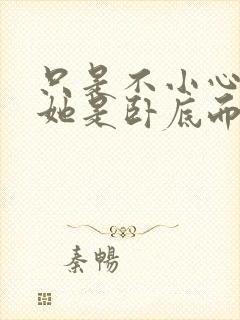 只是不小心
她是卧底而
秦暢